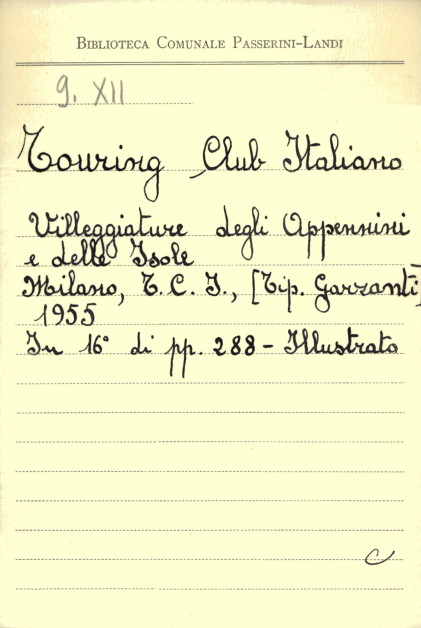 BIBLIOTECA COMUNALE PASSERINI-LANDI
9. XII
Touring Club Italiano
Villeggiature degli Appennini
e delle Isole
Milano, T. C. I., [Tip. Garzanti]
1955
In 16° di pp. 288 - Illustrato
C